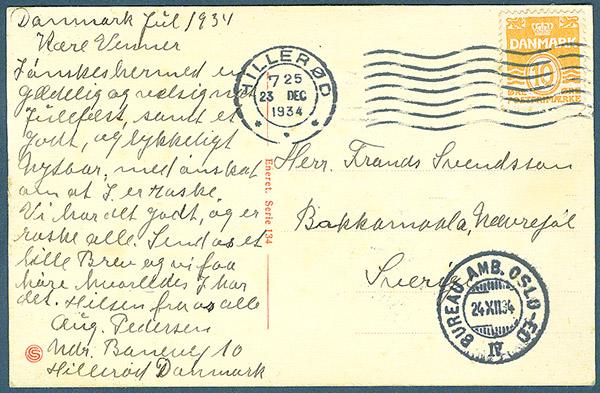 Danmark Jul 1934
Kære Venner
I ønskes hermed en
glædelig og velsignet
Julefest, samt et
godt, og lykkeligt
Nytaar, med ønske
om at I er raske.
Vi har det godt, og er
raske alle. Send os et
lille Brev og vi faa
høre hvorledes I har
det. Hilsen fra os alle
Aug. Pedersen
Ndr. Banevej 10
Hillerød Danmark
Eneret. Serie 134
HILLERØD
7 25
23 DEC
1934
DANMARK
10
ØRE ØRE
POSTFRIMÆRKE
Herr. Frands Svendsson
Sverig
BUREAU AMB. OSLO-ED
24XII34
IV
S